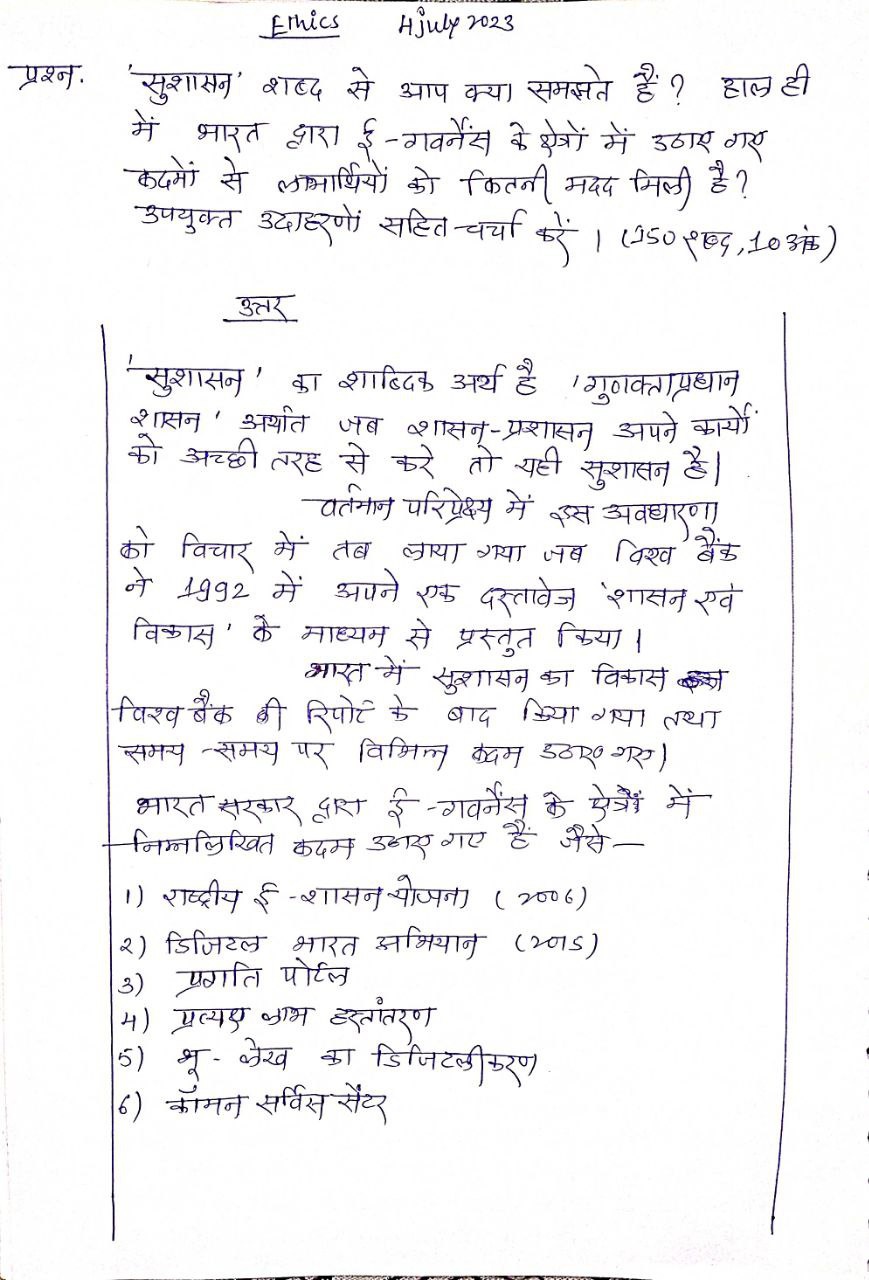 Ethics 4 july 2023
प्रश्न. 'सुशासन' शब्द से आप क्या समझते हैं? हाल ही
में भारत द्वारा ई-गवर्नेंस के क्षेत्रों में उठाए गए
कदमों से लाभार्थियों को कितनी मदद मिली है?
उपयुक्त उदाहरणों सहित चर्चा करें। (150 शब्द, 10 अंक)
उत्तर
'सुशासन' का शाब्दिक अर्थ है 'गुणवत्ताप्रधान
शासन' अर्थात जब शासन-प्रशासन अपने कार्यों
को अच्छी तरह से करे तो यही सुशासन है।
वर्तमान परिप्रेक्ष्य में इस अवधारणा
को विचार में तब लाया गया जब विश्व बैंक
ने 1992 में अपने एक दस्तावेज 'शासन एवं
विकास' के माध्यम से प्रस्तुत किया।
भारत में सुशासन का विकास
विश्व बैंक की रिपोर्ट के बाद किया गया तथा
समय-समय पर विभिन्न कदम उठाए गए।
भारत सरकार द्वारा ई-गवर्नेंस के क्षेत्रों में
निम्नलिखित कदम उठाए गए हैं जैसे—
1) राष्ट्रीय ई-शासन योजना (2006)
2) डिजिटल भारत अभियान (2015)
3) प्रगति पोर्टल
4) प्रत्यक्ष लाभ हस्तांतरण
5) भू-लेख का डिजिटलीकरण
6) कॉमन सर्विस सेंटर